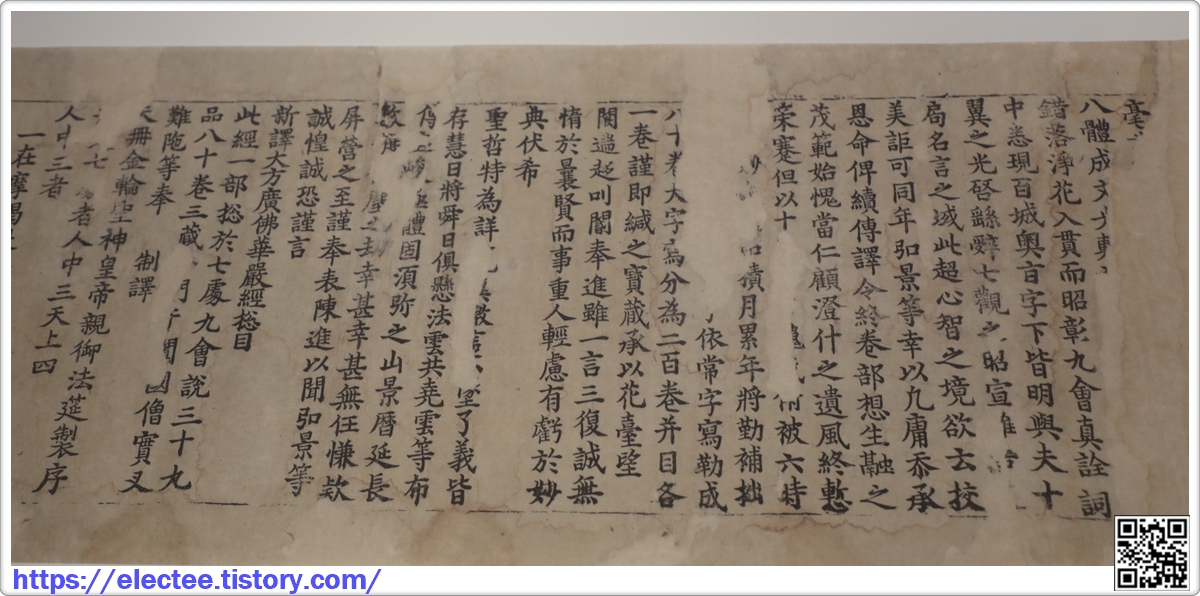 毫
八體成文
錯落淨花入貫而昭彰九會真詮詞
中悉現百城奧旨字下皆明與夫十
翼之光啓繇辭七觀之昭宣
局名言之域此超心智之境欲去挍
美詎可同年弘景等幸以凡庸忝承
恩命俾續傳譯令終卷部想生融之
茂範始愧當仁顧澄什之遺風終慙
荣蹇但以十 被六時
積月累年將勤補拙
依常字寫勒成
八十卷大字寫分為二百卷并目各
一卷謹即緘之寶蔵承以花臺堅
閱遄起叫閽奉進雖一言三復誠無
惰於曩賢而事重人輕慮有虧於妙
典伏希
聖哲特為詳 了義皆
存慧日將舜日俱懸法雲共堯雲等布
峻 體固須弥之山景曆延長
之刼幸甚幸甚無任慊欵
屏營之至謹奉表陳進以聞弘景等
誠惶誠恐謹言
新譯大方廣佛華嚴經捴目
此經一部捴於七處九會說三十九
品八十卷三蔵 國僧實叉
難陁等奉 制譯
天冊金輪聖神皇帝親御法莚製序
者人中三天上四
人中三者
一在摩竭
https://electee.tistory.com/